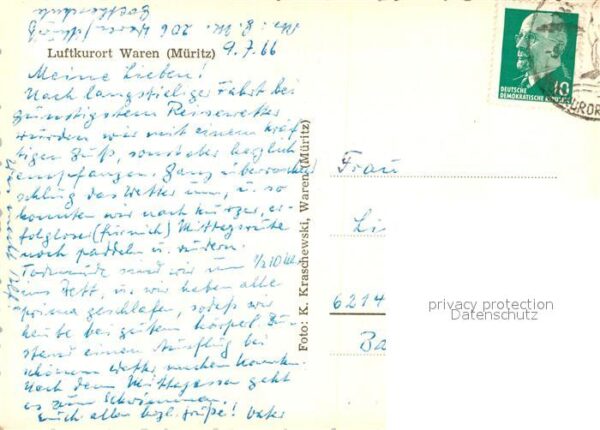 Luftkurort Waren (Müritz)
9.7.66
Meine Lieben!
Nach langspieliger Fahrt bei
günstigstem Reisewetter
wurden wir mit einem kräf
tigen Guß, sonst aber herzlich
empfangen. Ganz überraschend
schlug das Wetter um, u. so
konnten wir nach kurzer, er-
folgloser (für mich) Mittagsruhe
noch paddeln u. rudern.
Todmüde sind wir um 1/2 10 Uhr
ins Bett, u. wir haben alle
prima geschlafen, sodaß wir
heute bei gutem körperl. Zu-
stand einen Ausflug bei
schönem Wetter machen konnten.
Nach dem Mittagessen geht
es zum Schwimmen.
Euch allen herzl. Grüße! Vater
Foto: K. Kraschewski, Waren (Müritz)
DEUTSCHE
DEMOKRATISCHE
10
Frau
Li
6214
Ba
privacy protection
Datenschutz